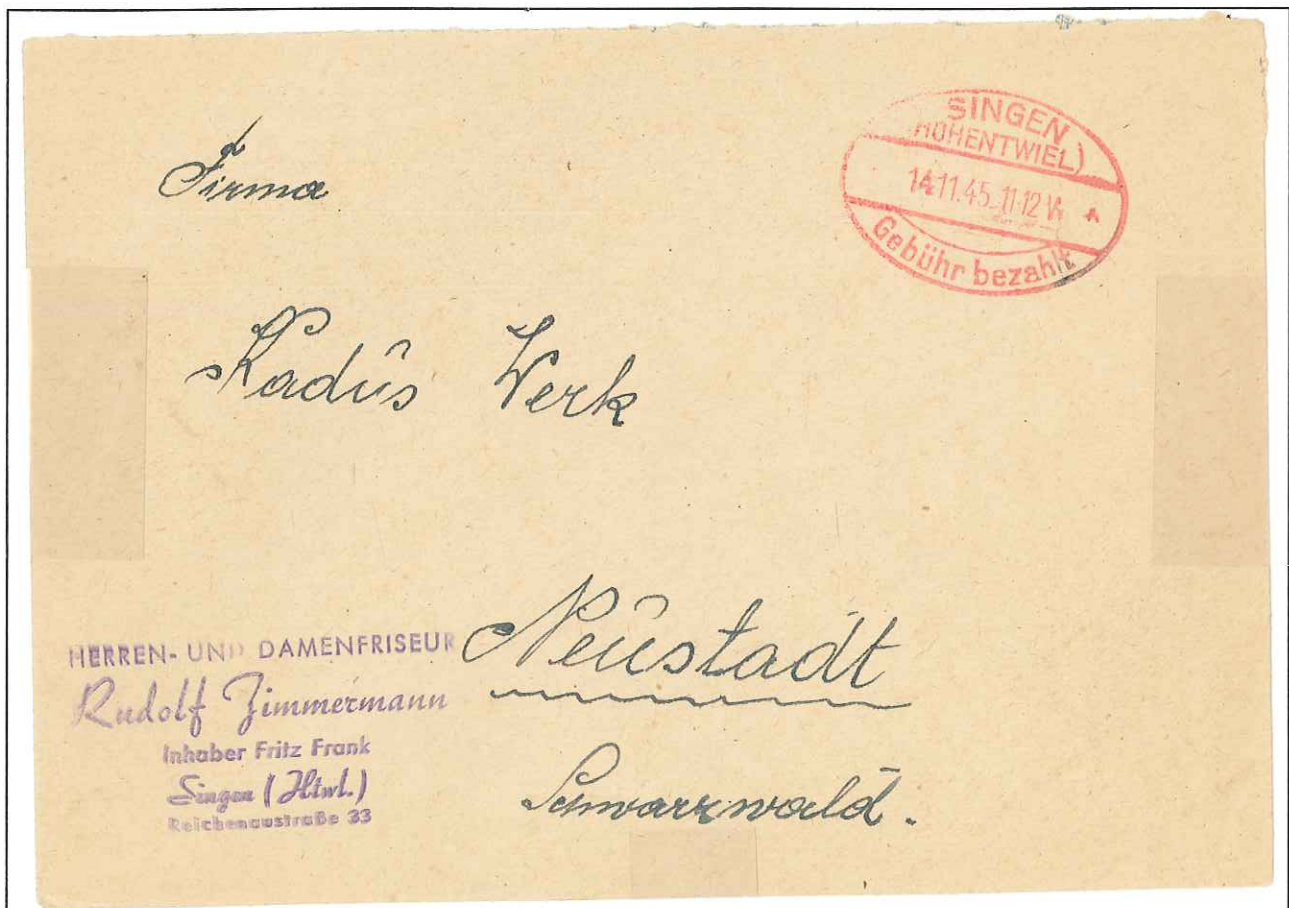 Firma
SINGEN
(HOHENTWIEL)
11.45. 11-12
Gebühr bezahlt
Kadus Werk
Neustadt
Schwarzwald.
HERREN- UND DAMENFRISEUR
Rudolf Zimmermann
Inhaber Fritz Frank
Singen (Htwl.)
Reichenaustraße 33